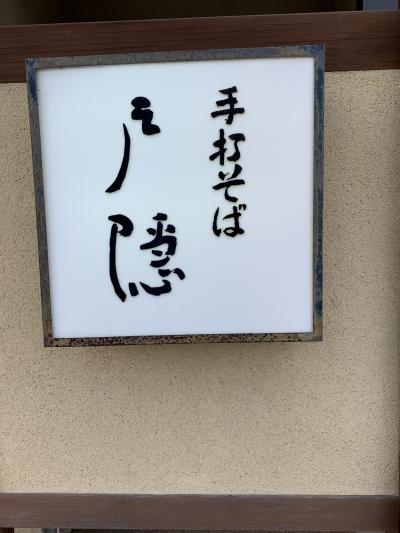 手打そば
戸隠